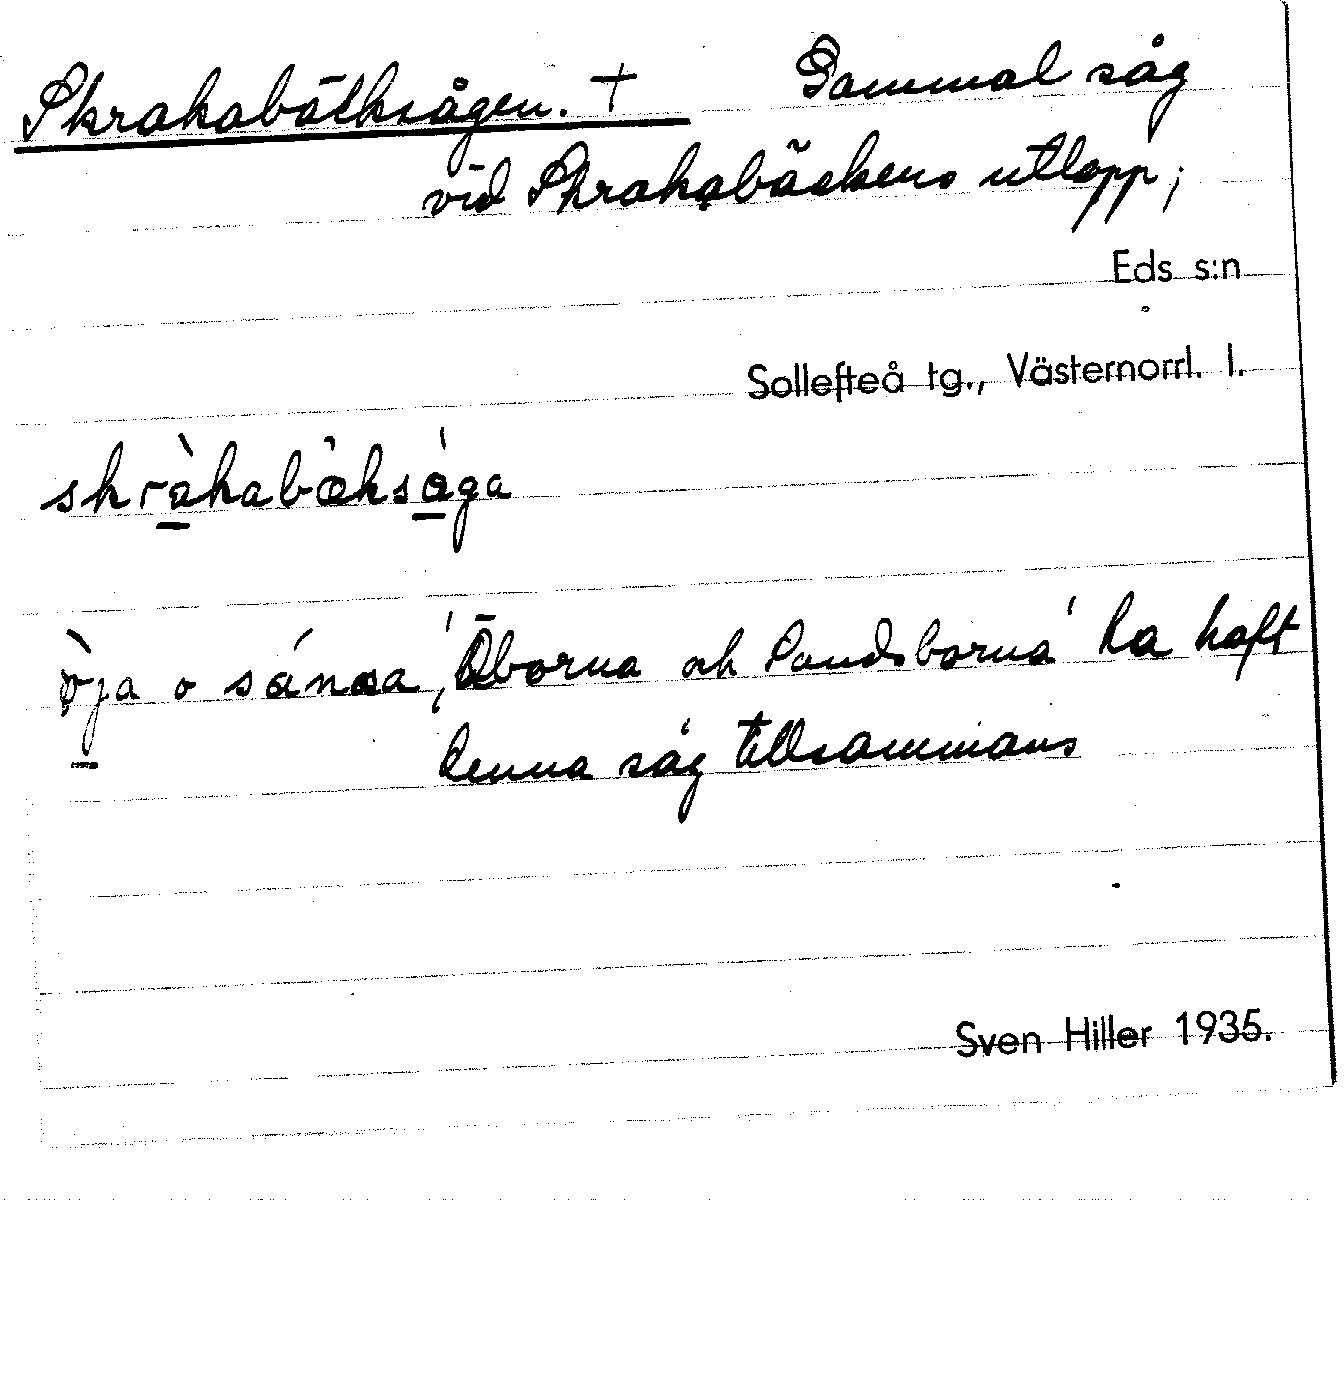 Skrakabäcksågen. + Gammal såg
vid Skrakabäckens utlopp;
Eds s:n
Sollefteå tg., Västernorrl. l.
skràkabäksåga
o sánsa, 'Öborna och Sandsborna' ha haft
denna såg tillsammans
Sven Hiller 1935.